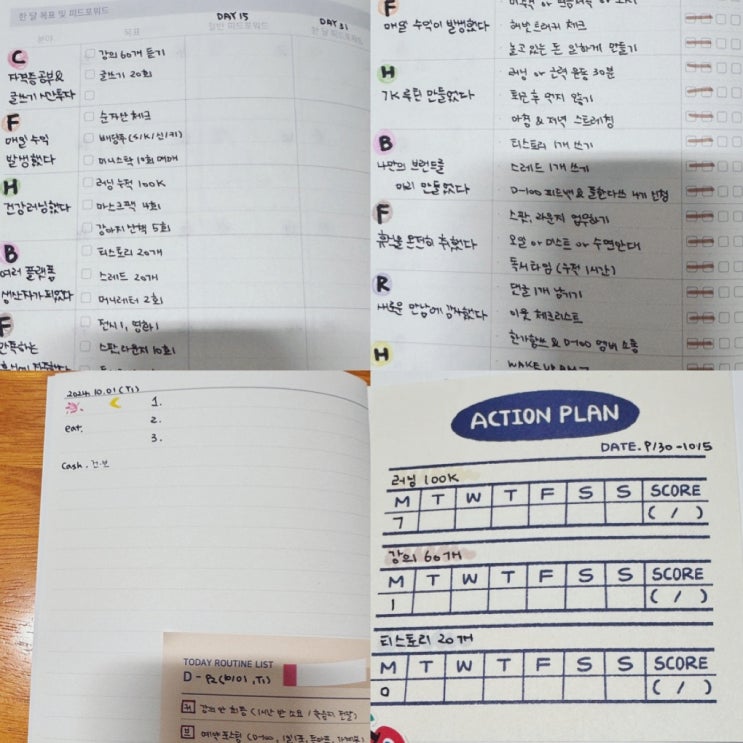 한 달 목표 및 피드포워드
DAY 15
DAY 31
분야
목표
한 달 피드포워드
C
자격증 공부 &
글쓰기 시간 투자
강의 60개 듣기
글쓰기 20회
F
매일 수익
발생했다
순자산 체크
배당주 (S/K/신/키)
미니스탁 10회 매매
H
건강러닝했다
러닝 누적 100K
마스크팩 4회
강아지 산책 5회
B
여러 플랫폼
생산자가 되었다
티스토리 20개
스레드 20개
머니레터 2회
F
전시 1, 영화 1
스판, 라운지 10회
F
매일 수익이 발생했다
허브프리퀴 체크
놀고 있는 돈 일하게 만들기
H
7K 육퇸 만들었다
러닝 or 근력 운동 30분
퇴근 후 먹지 않기
아침 & 저녁 스트레칭
B
나만의 브랜드를
미리 만들었다
티스토리 1개 쓰기
스레드 1개 쓰기
D-100 피드백 & 톧한다쓰 4기 인청
F
휴식을 온전히 취했다
스판, 라운지 업무하기
오일 or 미스트 or 수면안대
독서타임 (누적 1시간)
R
새로운 만남에 감사했다
댓글 1개 남기기
이웃 체크리스트
한가함쓰 & D-100 멤버 소통
H
2024. 10. 01 (T1)
1.
2.
eat.
3.
cash. 건.보
TODAY ROUTINE LIST
D - 92 (10/01, T1)
커 강의안 최종 (1시간 반 소요 / 학습지 전달)
브
ACTION PLAN
DATE. 9/30 - 10/5
러닝 100K
M T W T F S S SCORE
7 ( / )
강의 60개
M T W T F S S SCORE
1 ( / )
티스토리 20개
M T W T F S S SCORE
0 ( / )